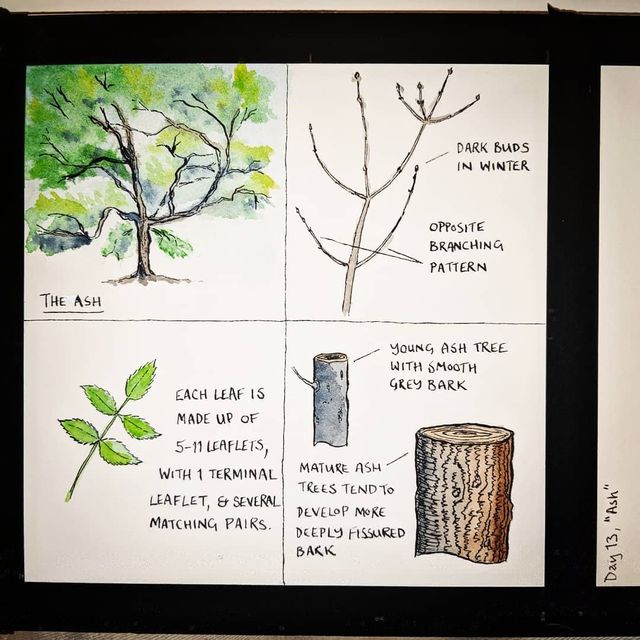 THE ASH
DARK BUDS
IN WINTER
OPPOSITE
BRANCHING
PATTERN
EACH LEAF IS
MADE UP OF
5-11 LEAFLETS,
WITH 1 TERMINAL
LEAFLET, & SEVERAL
MATCHING PAIRS.
YOUNG ASH TREE
WITH SMOOTH
GREY BARK
MATURE ASH
TREES TEND TO
DEVELOP MORE
DEEPLY FISSURED
BARK
Day 13, "Ash"